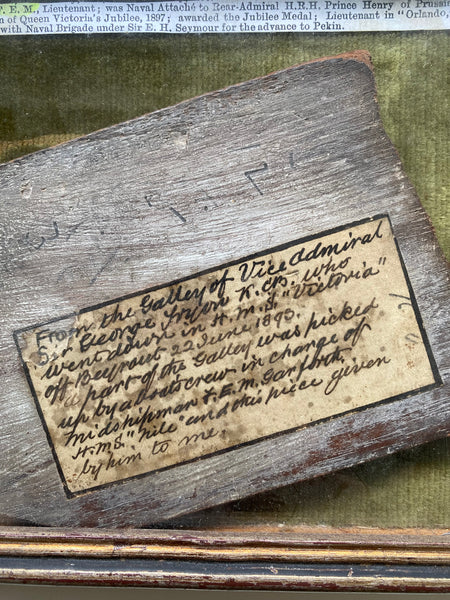 F. E. M., Lieutenant; was Naval Attaché to Rear-Admiral H.R.H. Prince Henry of Prussia
n of Queen Victoria's Jubilee, 1897; awarded the Jubilee Medal; Lieutenant in "Orlando,
with Naval Brigade under Sir E. H. Seymour for the advance to Pekin.
From the Galley of Vice Admiral
Sir George Tryon K.C.B. who
went down in H.M.S. "Victoria"
off Beyrout 22 June 1893.
a part of the Galley was picked
up by a boats crew in charge of
midshipman F. E. M. Garforth.
H.M.S. "Nile" and this piece given
by him to me.